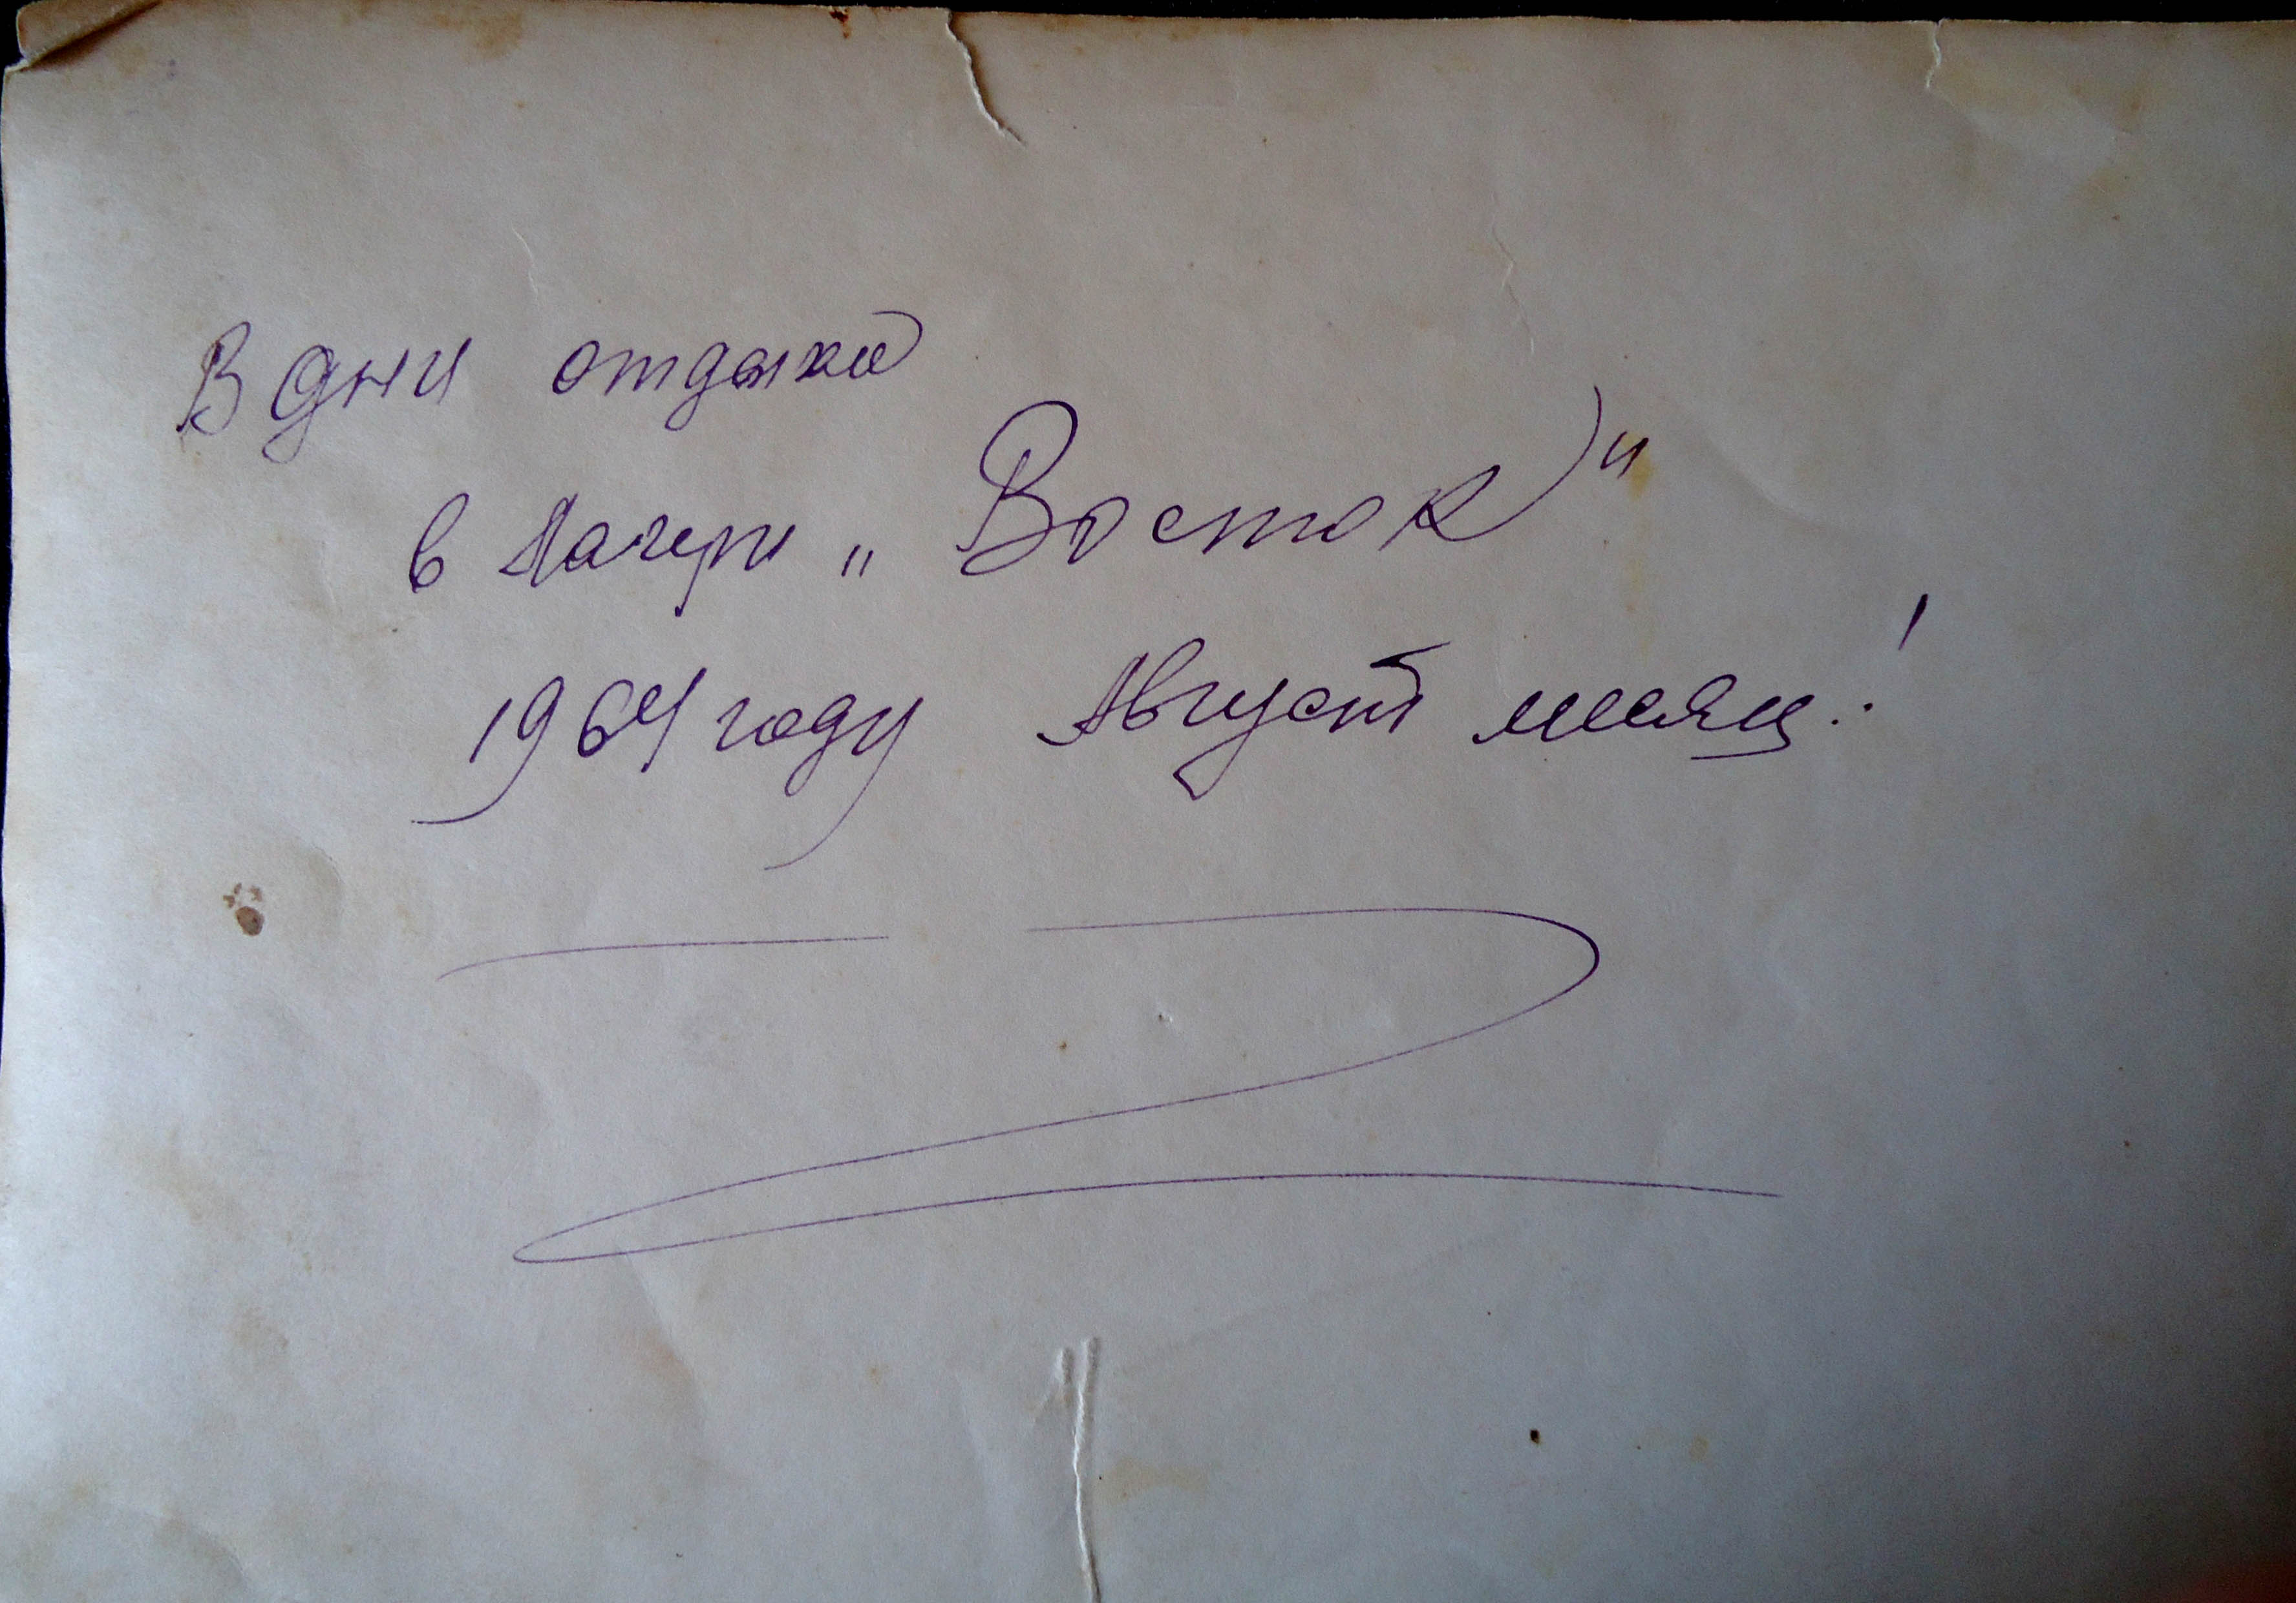 В дни отдыха
в Лагери „Восток"
1964 году Август месяц.!